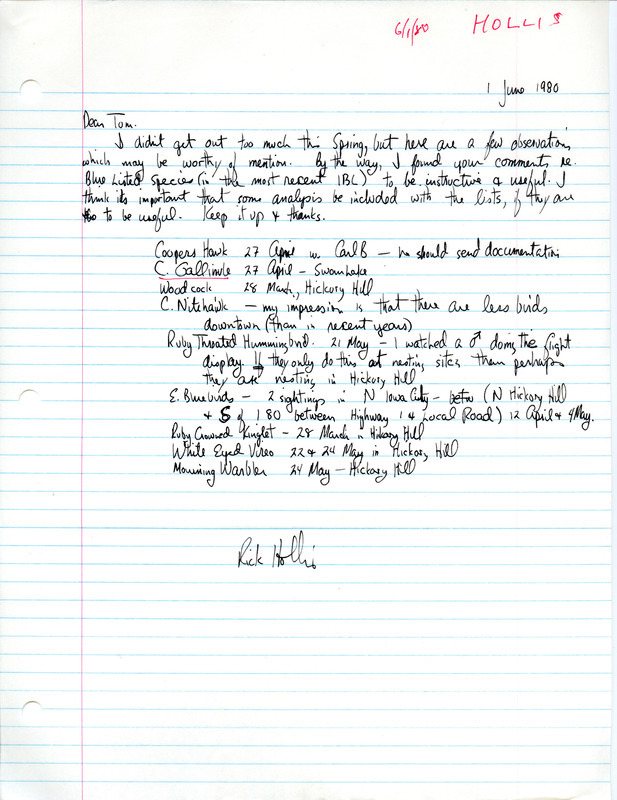 6/1/80 HOLLIS
1 June 1980
Dear Tom.
I didn't get out too much this Spring, but here are a few observations
which may be worthy of mention. By the way, I found your comments re.
Blue Listed Species (in the most recent IBL) to be instructive & useful. I
think its important that some analysis be included with the lists, if they are
to be useful. Keep it up & thanks.
Coopers Hawk 27 April w. Carl B – he should send documentation
C. Gallinule 27 April – Swan Lake
Woodcock 28 March, Hickory Hill
C. Nitehawk – my impression is that there are less birds
downtown (than in recent years)
Ruby Throated Hummingbird. 21 May – I watched a ♂ doing the flight
display. If they only do this at nesting sites them perhaps
they are nesting in Hickory Hill
E. Bluebirds – 2 sightings in N Iowa City – betw (N Hickory Hill
& S of I 80 between Highway 1 & Local Road) 12 April & 4 May.
Ruby Crowned Kinglet – 28 March in Hickory Hill
White Eyed Vireo 22 & 24 May in Hickory Hill
Mourning Warbler 24 May – Hickory Hill
Rick Hollis